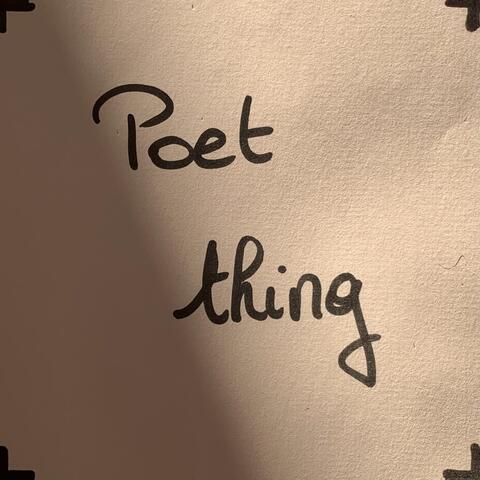 Poet
thing